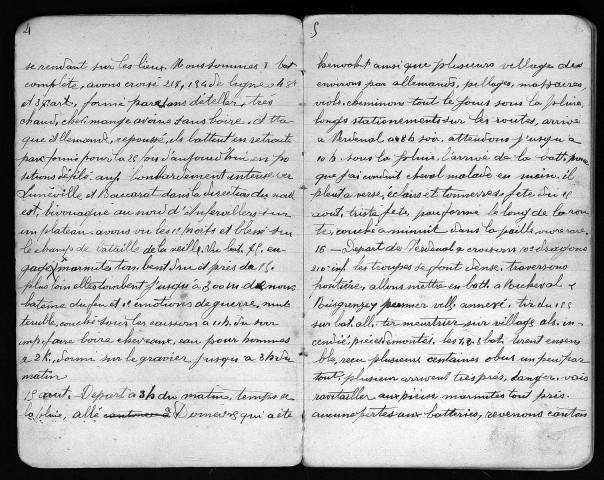 4
se rendant sur les lieux. Nous sommes 3 bat
complète, avons croisé 217, 134 de ligne 48e
et part, formé parc sans dételler. très
chaud, chel. mange avoine sans boire. Atta
que allemande, repoussé, ils battent en retraite
parc formé pour la 2e fois d'aujourd'hui en po
sitions défilé auf. bombardement intense vers
Lunéville et Baccarat dans la direction du nord
est, bivouaque au nord d'Anferviller sur
un plateau. avons vu les 1e morts et blessé sur
le champ de bataille de la veille. Du bat. 75. en
gagé marmites tombent dru et près du 15.
plus loin elles tombent jusqu'à 300 m de nous
batême du feu et 1e émotions de guerre, nuit
terrible, couché sous les caissons à 11h. du soir
imp. faire boire chevaux, eau pour hommes
à 2 K. dormi sur le gravier jusqu'à 3h du
matin
15 août. Départ à 3h du matin, temps à
la pluie, allé Domèvre qui a été
5
ainsi que plusieurs villages des
environs par allemands, pillages, massacres,
viols. cheminons tout le jour sous la pluie,
longs stationnements sur les routes, arrivé
à Verdenal à 8h soir. attendons jusqu'à
10 h. sous la pluie l'arrivée de la bat.
que j'ai conduit cheval malade en main. il
pleut à verse, éclairs et tonnerres. fête du 15
août, triste fête, parc formé le long de la rou
te, couché à minuit dans la paille,
16 - Départ de Verdenal, croisons 10e dragons
216 inf. les troupes se font dense. traversons
frontière, allons mettre en bat. à Rucheval &
premier vill. annexé. tir du 155
sur bat. all. tir meurtrier sur village als. in
cendié, pièces démontés. les 1. 2. 3 bat. tirent ensem
ble, reçu plusieurs centaines obus un peu par
tout, plusieurs arrivent très près, danger. vais
ravitailler aux pièces marmites tout près.
aucune pertes aux batteries, revenons canton